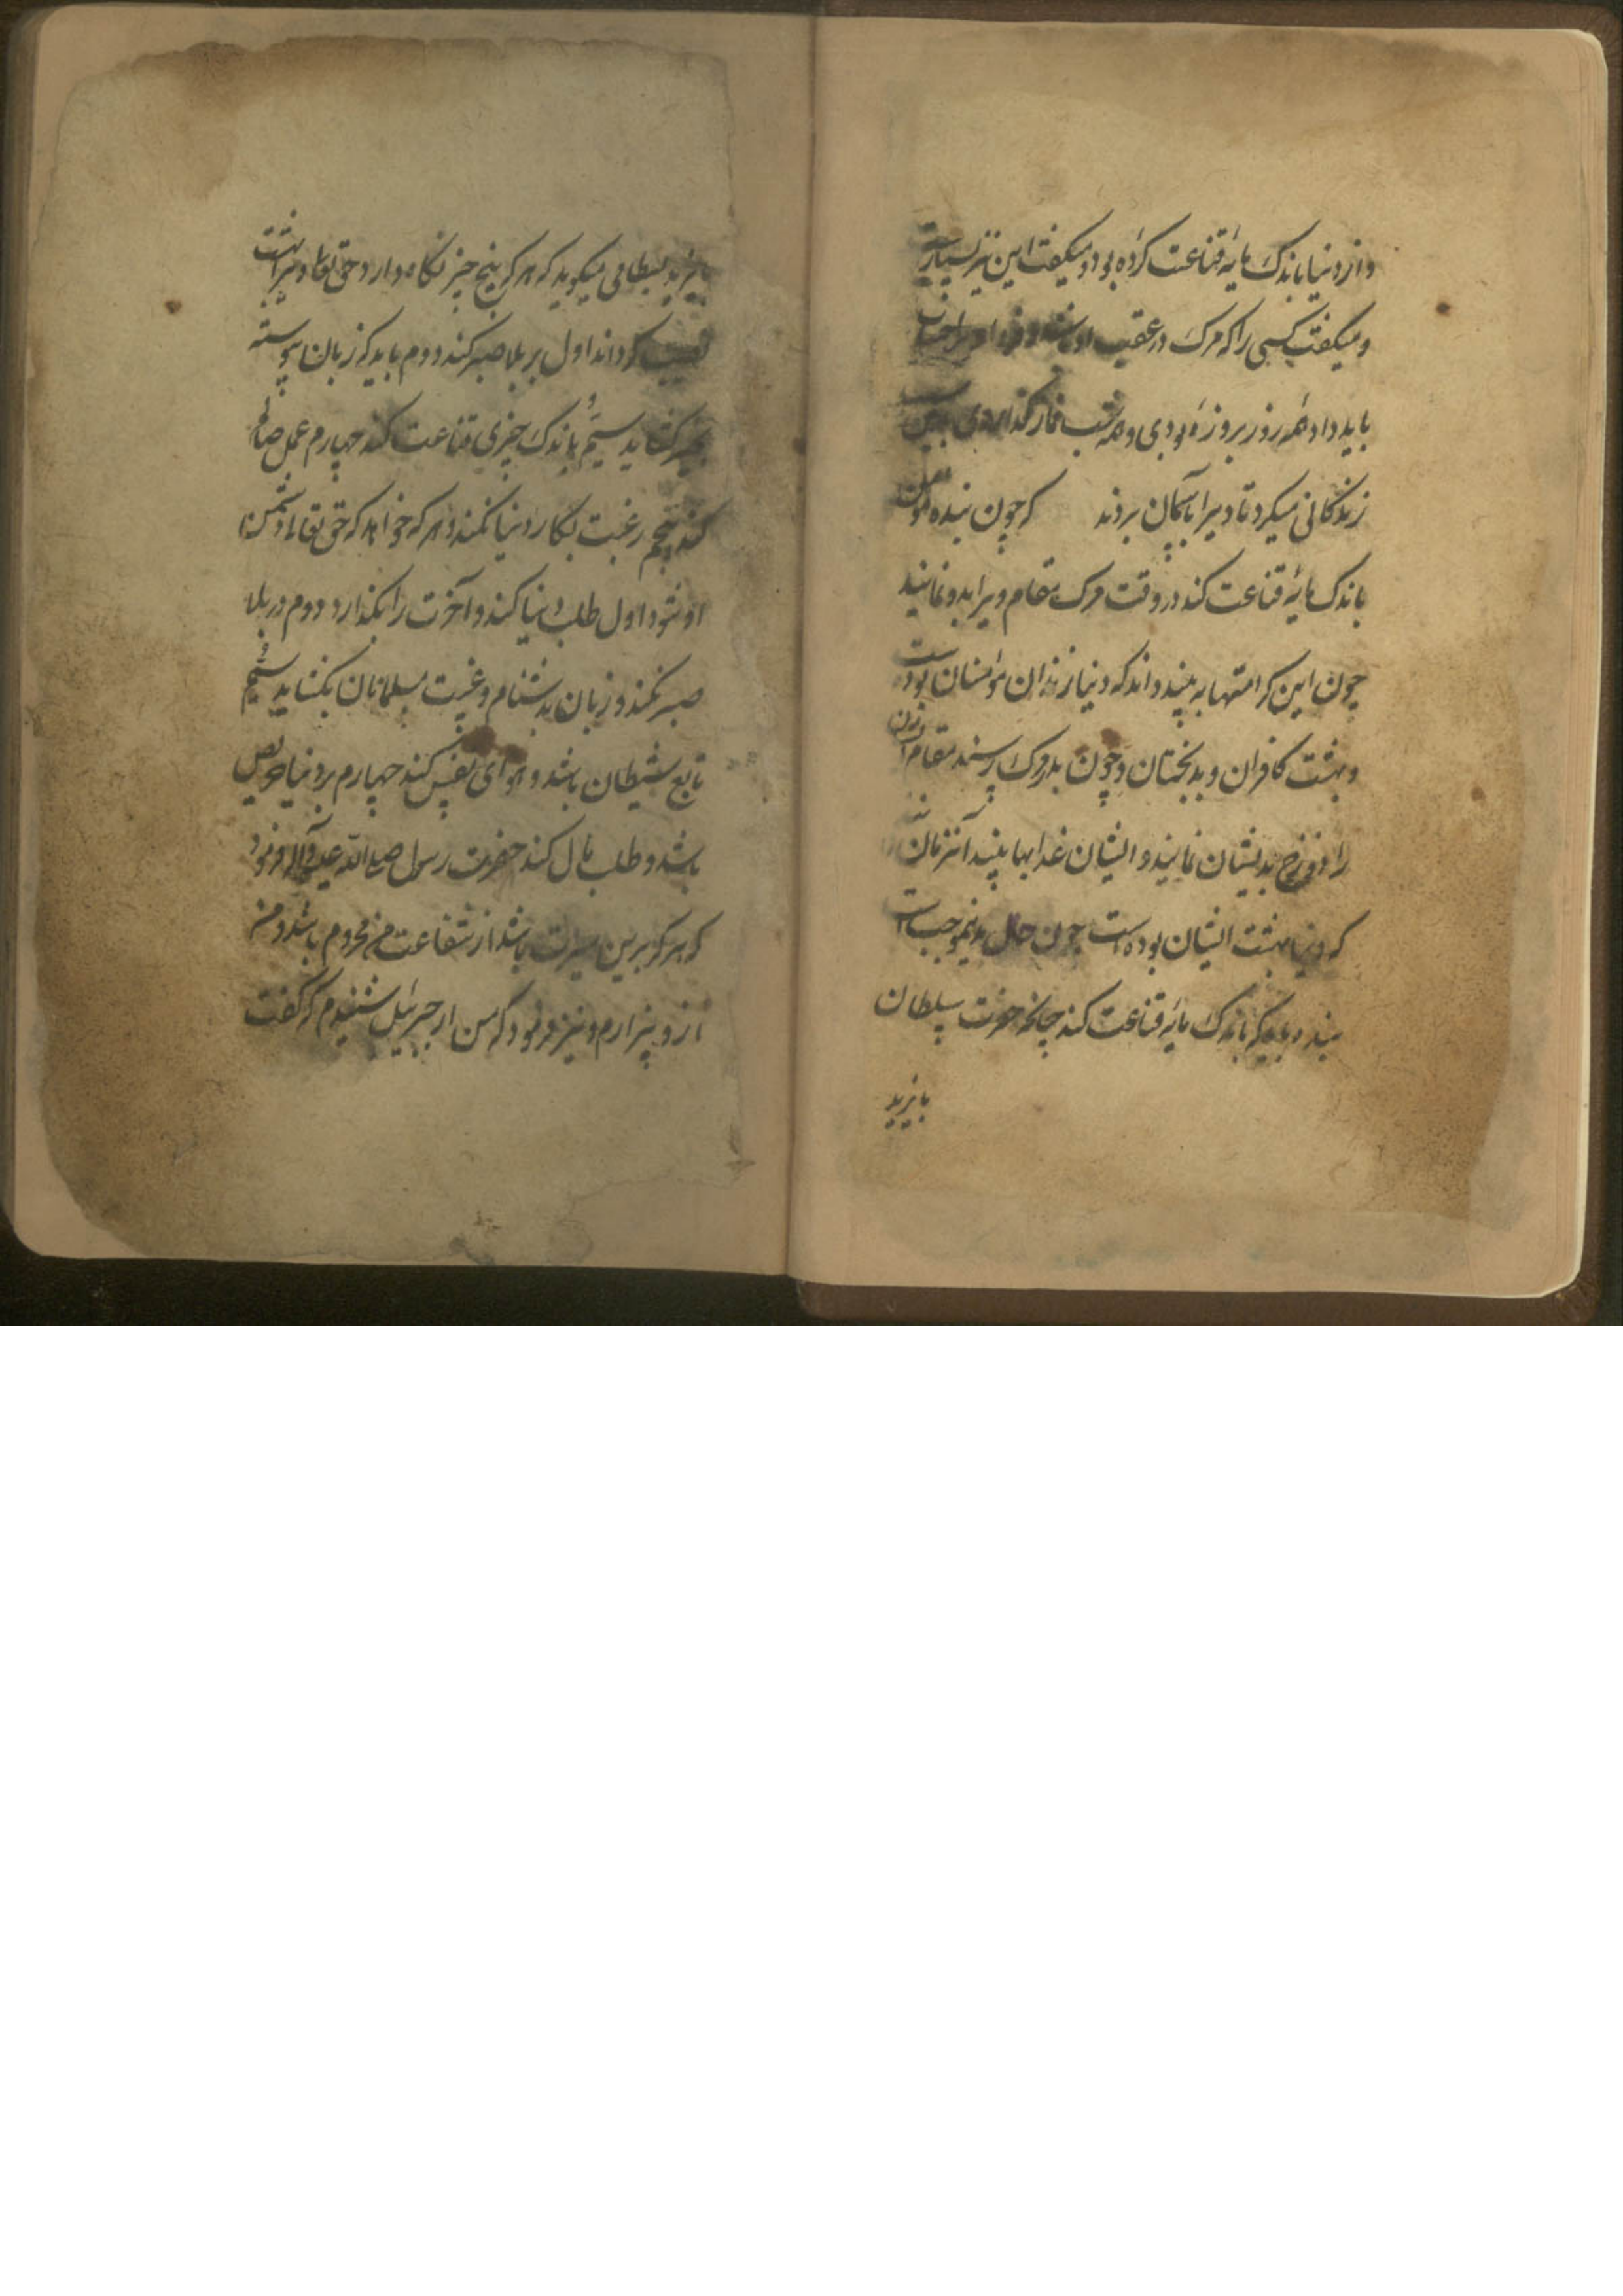 و از دنیا باندک مایهٔ قناعت کرده بود و میگفت این نیز بسیارست
و میگفت کسی را که مرک در عقیب او باشد و فردا
باید داد همه روز بروزه بودی و همه شب نماز گذاردی
زندگانی میکرد تا ویرا بآسمان بردند که چون بنده مؤمن
باندک مایهٔ قناعت کند در وقت مرک مقام ویرا بدو نمایند
چون این کرامتها به بیند داند که دنیا زندان مؤمنان بودست
و بهشت کافران و بدبختان و چون بدر مرک رسند مقام
را دوزخ بدیشان نمایند و ایشان عذابها بینند آنزمان
که دنیا بهشت ایشان بوده است چون حال بدینموجب است
بنده باید که باندک مایهٔ قناعت کند چنانچه حضرت سلطان
بایزید
بایزید بسطامی میگوید که هر که پنج چیز نگاه دارد حق تعالی ویرا بهشت
نصیب گرداند اول بر بلا صبر کند دوم باید که زبان پیوسته
بخیر گشاید سیُم باندک چیزی قناعت کند چهارم عمل صالح
کند پنجم رغبت بکار دنیا نکند و هر که خواهد که حق تعالی دشمن
او شود اول طلب دنیا کند و آخرت را بگذارد دوم در بلا
صبر نکند و زبان بدشنام و غیبت مسلمانان بگشاید سیُم
تابع شیطان باشد و هوای نفس کند چهارم بر دنیا حریص
باشد و طلب مال کند حضرت رسول صلی الله علیه وآله فرمود
که هر که برین سیرت باشد از شفاعت من محروم باشد و من
ازو بیزارم و نیز فرمود که من از جبرئیل شنیدم که گفت